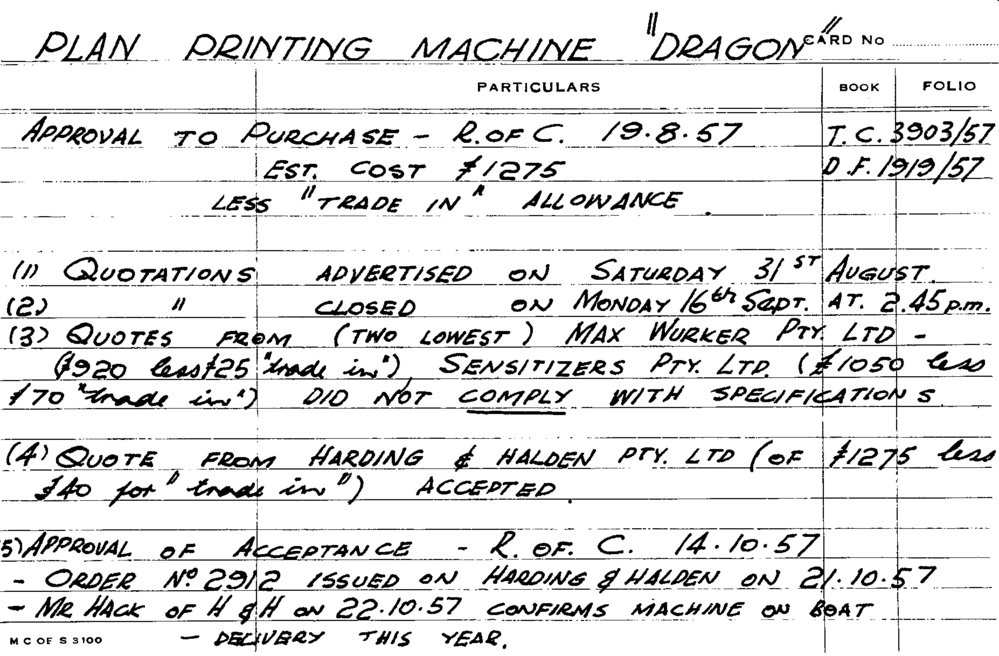 PLAN PRINTING MACHINE "DRAGON" CARD No
PARTICULARS BOOK FOLIO
APPROVAL TO PURCHASE - R. OF C. 19.8.57 T.C. 3903/57
EST. COST £1275 D.F. 1919/57
LESS "TRADE IN" ALLOWANCE.
(1) QUOTATIONS ADVERTISED ON SATURDAY 31ST AUGUST.
(2) " CLOSED ON MONDAY 16th SEPT. AT. 2.45 p.m.
(3) QUOTES FROM (TWO LOWEST) MAX WURKER PTY. LTD -
(£920 less £25 "trade in"), SENSITIZERS PTY. LTD. (£1050 less
£70 "trade in") DID NOT COMPLY WITH SPECIFICATIONS
(4) QUOTE FROM HARDING & HALDEN PTY. LTD (OF £1275 less
£40 for "trade in") ACCEPTED.
5) APPROVAL OF ACCEPTANCE - R. OF. C. 14.10.57
- ORDER No 2912 ISSUED ON HARDING & HALDEN ON 21.10.57
- MR HACK OF H & H ON 22.10.57 CONFIRMS MACHINE ON BOAT
M C OF S 3100 - DELIVERY THIS YEAR.